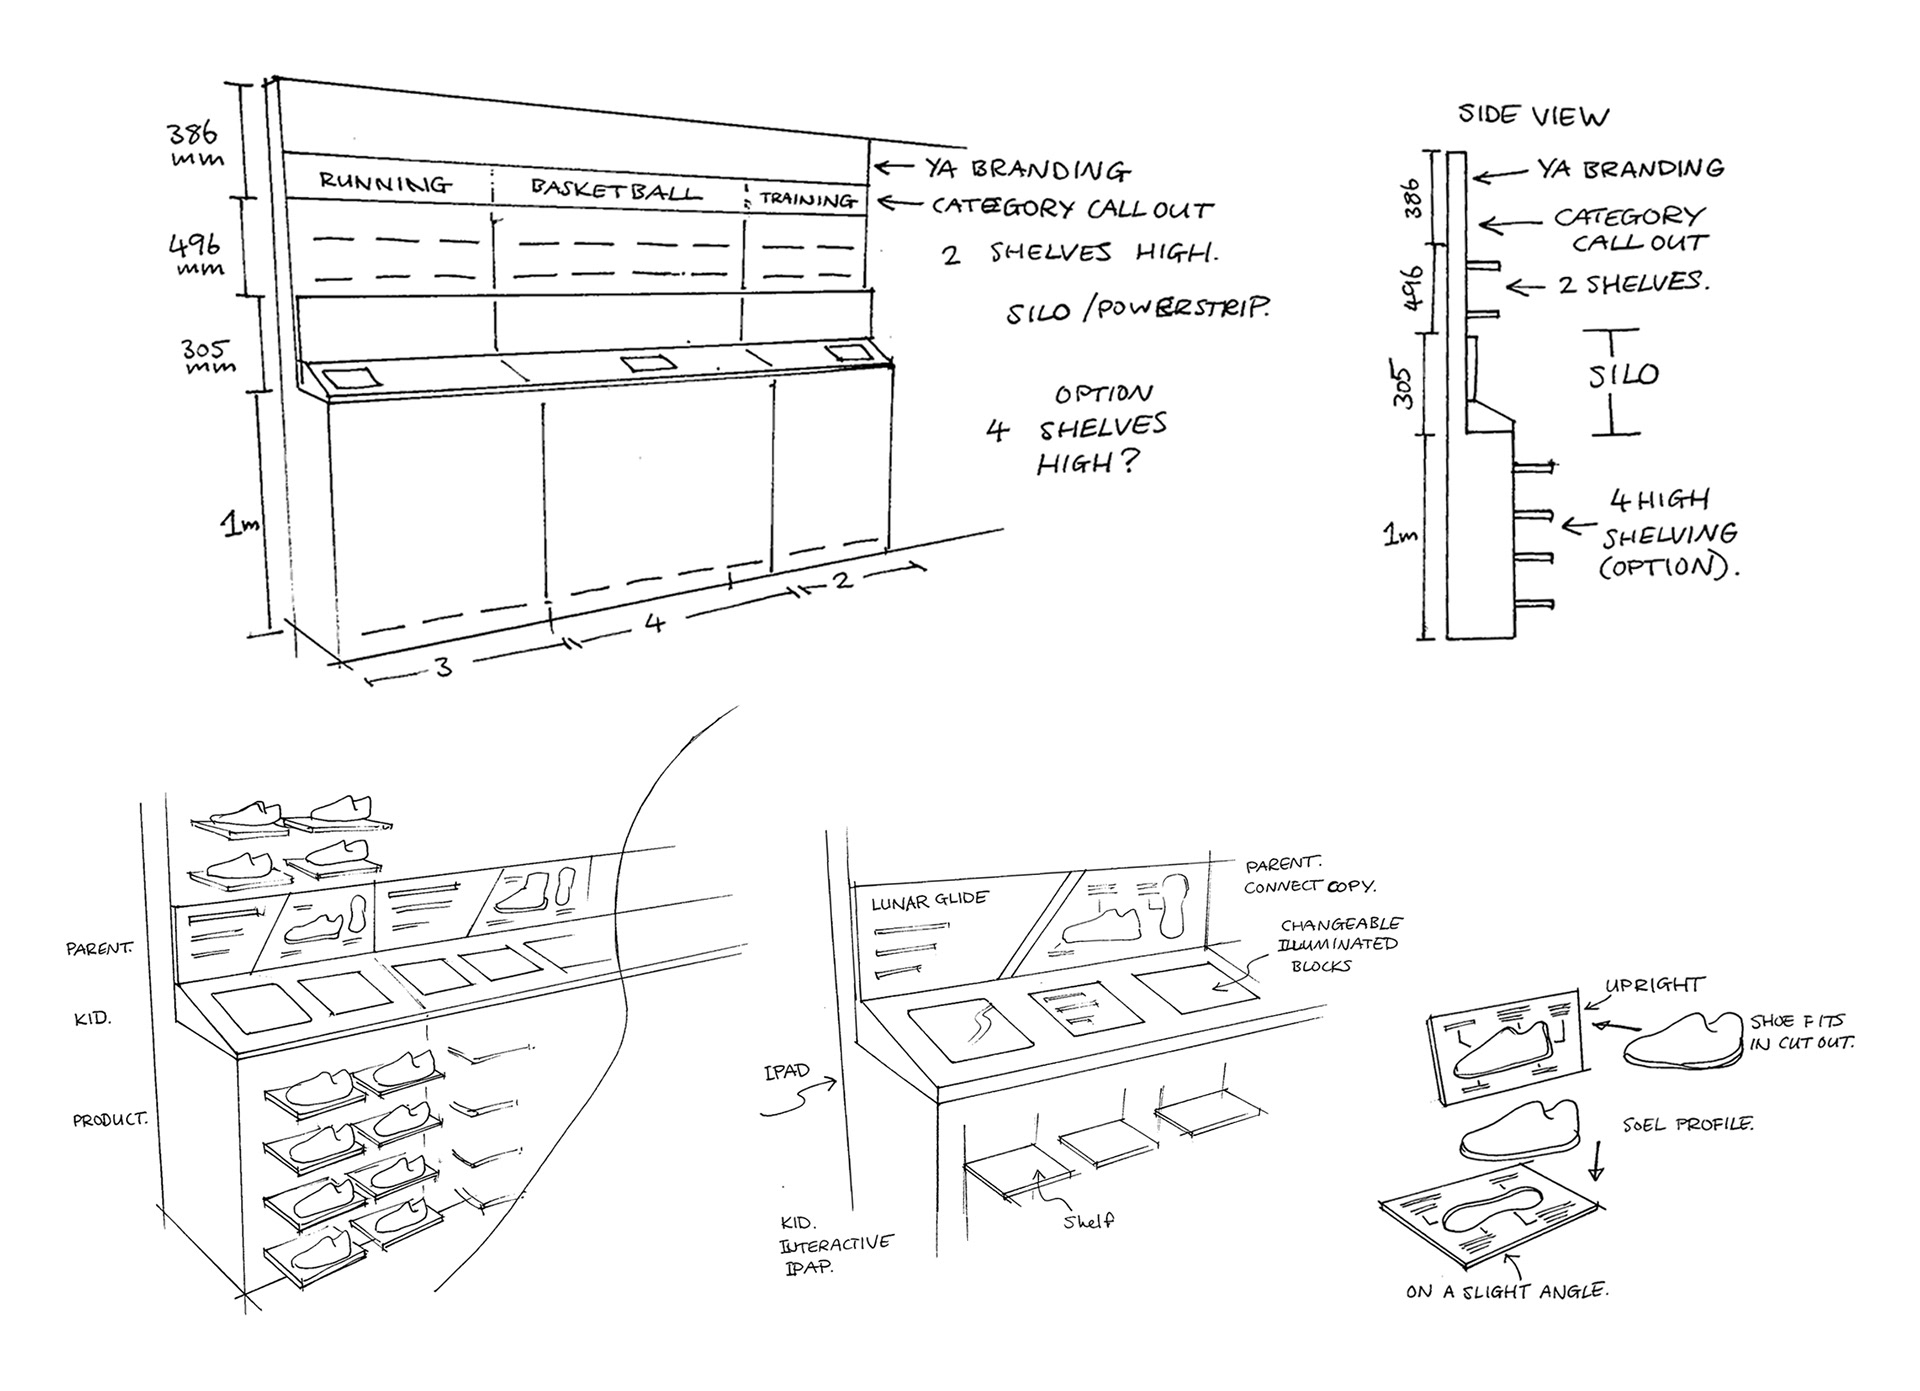 386
mm
496
mm
305
mm
1m
RUNNING
BASKETBALL
TRAINING
YA BRANDING
CATEGORY CALL OUT
2 SHELVES HIGH.
SILO / POWERSTRIP.
OPTION
4 SHELVES
HIGH?
3
4
2
SIDE VIEW
386
496
305
1m
YA BRANDING
CATEGORY
CALL OUT
2 SHELVES.
SILO
4 HIGH
SHELVING
(OPTION).
PARENT.
KID.
PRODUCT.
LUNAR GLIDE
PARENT.
CONNECT COPY.
CHANGEABLE
ILLUMINATED
BLOCKS
IPAD
Shelf
KID.
INTERACTIVE
IPAP.
UPRIGHT
SHOE FITS
IN CUT OUT.
SOEL PROFILE.
ON A SLIGHT ANGLE.